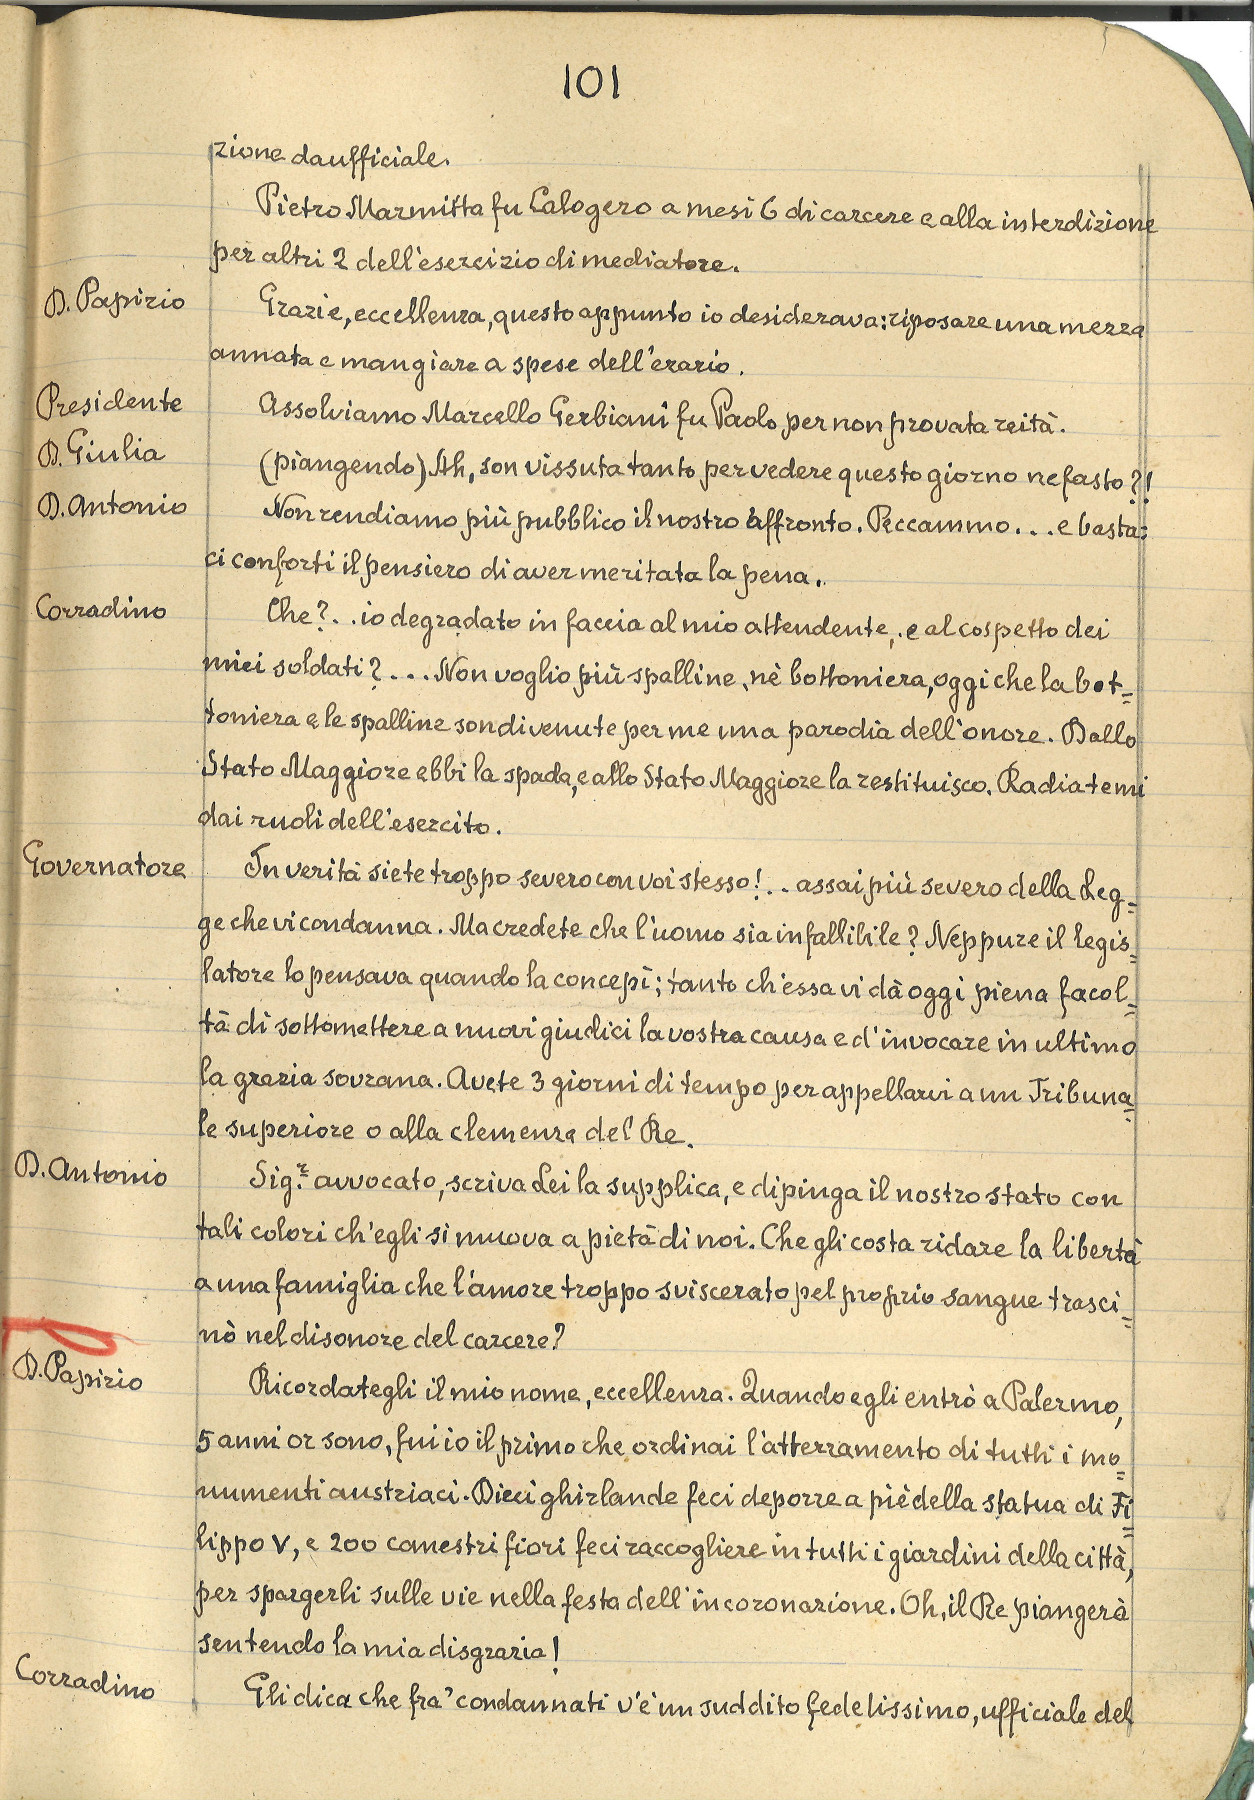 101
zione da ufficiale.
Pietro Marmitta fu Calogero a mesi 6 di carcere e alla interdizione
per altri 2 dell'esercizio di mediatore.
D. Papirio Grazie, eccellenza, questo appunto io desiderava: riposare una mezza
annata e mangiare a spese dell'erario.
Presidente Assolviamo Marcello Gerbiani fu Paolo per non provata reità.
D. Giulia (piangendo) Ah, son vissuta tanto per vedere questo giorno nefasto?!
D. Antonio Non rendiamo più pubblico il nostro affronto. Peccammo... e basta:
ci conforti il pensiero di aver meritata la pena.
Corradino Che?.. io degradato in faccia al mio attendente, e al cospetto dei
miei soldati?... Non voglio più spalline, nè bottoniera, oggi che la bot=
toniera e le spalline son divenute per me una parodia dell'onore. Dallo
Stato Maggiore ebbi la spada, e allo Stato Maggiore la restituisco. Radiatemi
dai ruoli dell'esercito.
Governatore In verità siete troppo severo con voi stesso!.. assai più severo della Leg=
ge che vi condanna. Ma credete che l'uomo sia infallibile? Neppure il legis=
latore lo pensava quando la concepì; tanto ch'essa vi dà oggi piena facol=
tà di sottomettere a nuovi giudici la vostra causa e d'invocare in ultimo
la grazia sovrana. Avete 3 giorni di tempo per appellarvi a un Tribuna=
le superiore o alla clemenza del Re.
D. Antonio Sig.r avvocato, scriva Lei la supplica, e dipinga il nostro stato con
tali colori ch'egli si muova a pietà di noi. Che gli costa ridare la libertà
a una famiglia che l'amore troppo sviscerato pel proprio sangue trasci=
nò nel disonore del carcere?
D. Papirio Ricordategli il mio nome, eccellenza. Quando egli entrò a Palermo,
5 anni or sono, fui io il primo che ordinai l'atterramento di tutti i mo=
numenti austriaci. Dieci ghirlande feci deporre a piè della statua di Fi=
lippo V, e 200 canestri fiori feci raccogliere in tutti i giardini della città,
per spargerli sulle vie nella festa dell'incoronazione. Oh, il Re piangerà
sentendo la mia disgrazia!
Corradino Gli dica che fra' condannati v'è un suddito fedelissimo, ufficiale del